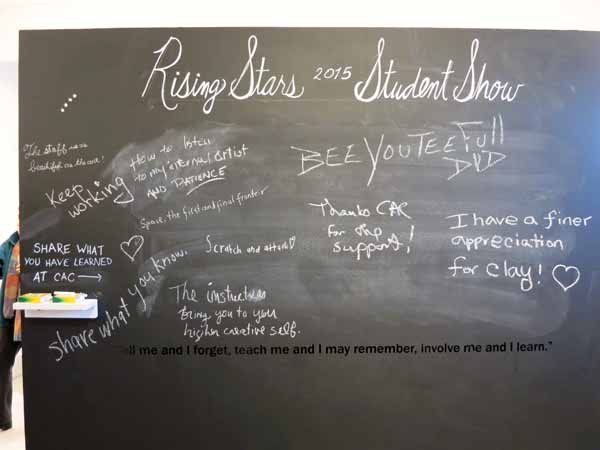 Rising Stars 2015 Student Show
The staff was
beautiful as the art!
Keep
working
How to listen
to my internal artist
AND PATIENCE
BEE YOU TEE Full
DVD
Space, the first and final frontier
Thanks CAC
for the
support!
I have a finer
appreciation
for clay!
SHARE WHAT
YOU HAVE LEARNED
AT CAC →
Scratch and
share what you know.
The instructors
bring you to your
higher creative self.
ll me and I forget, teach me and I may remember, involve me and I learn."